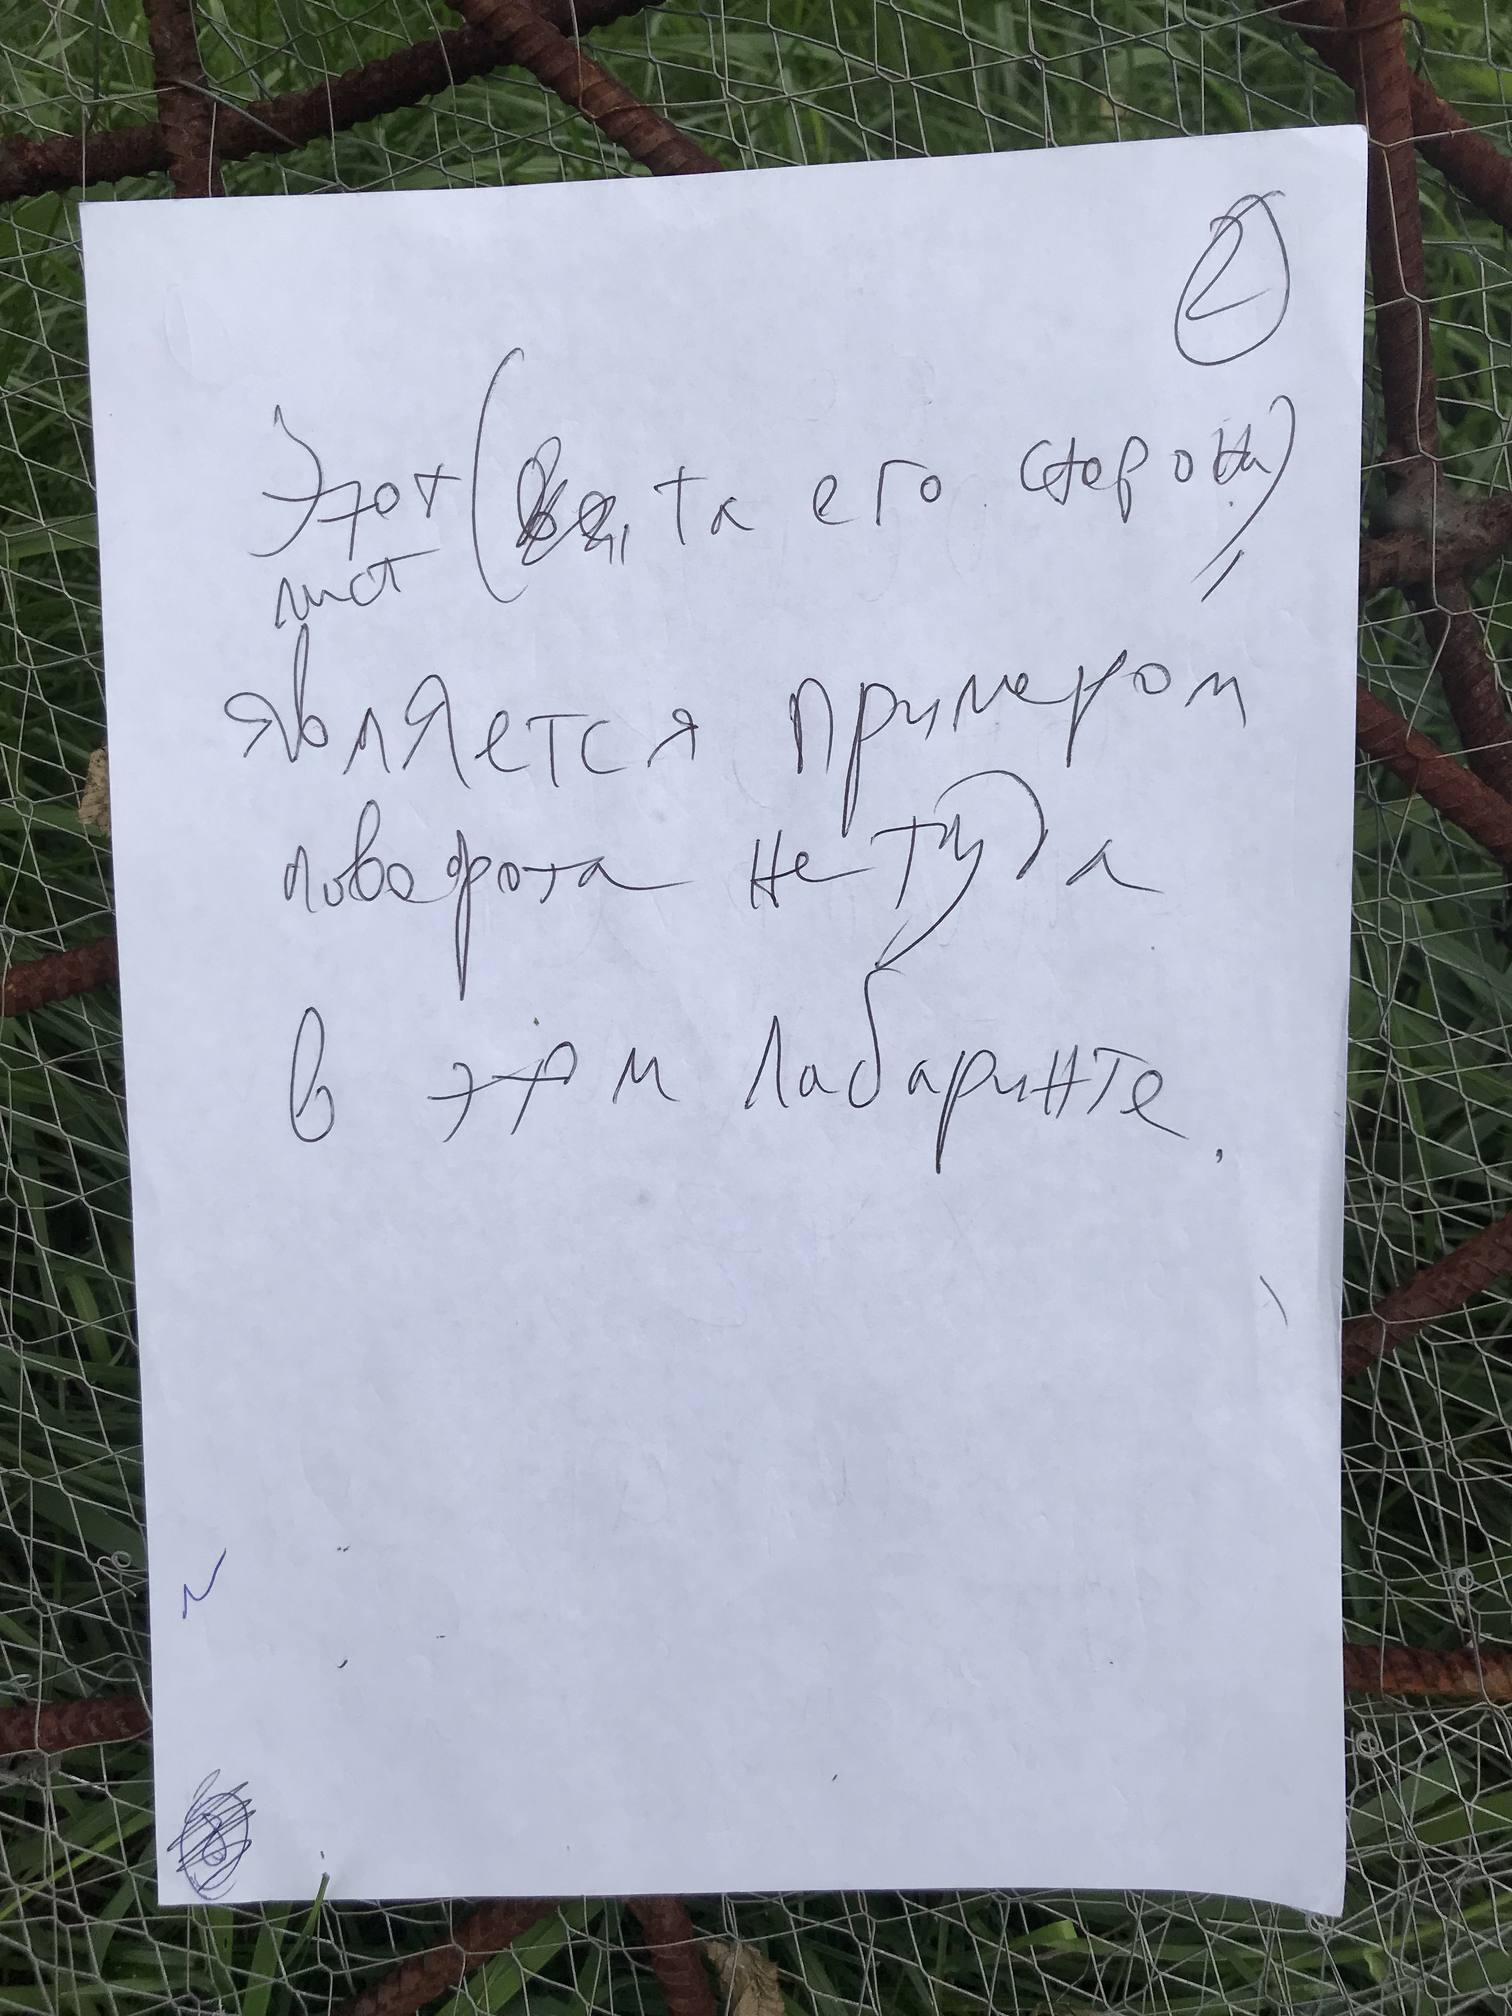 2
Этот (та его сторона),
лист
является примером
поворота не туда
в этом лабаринте.